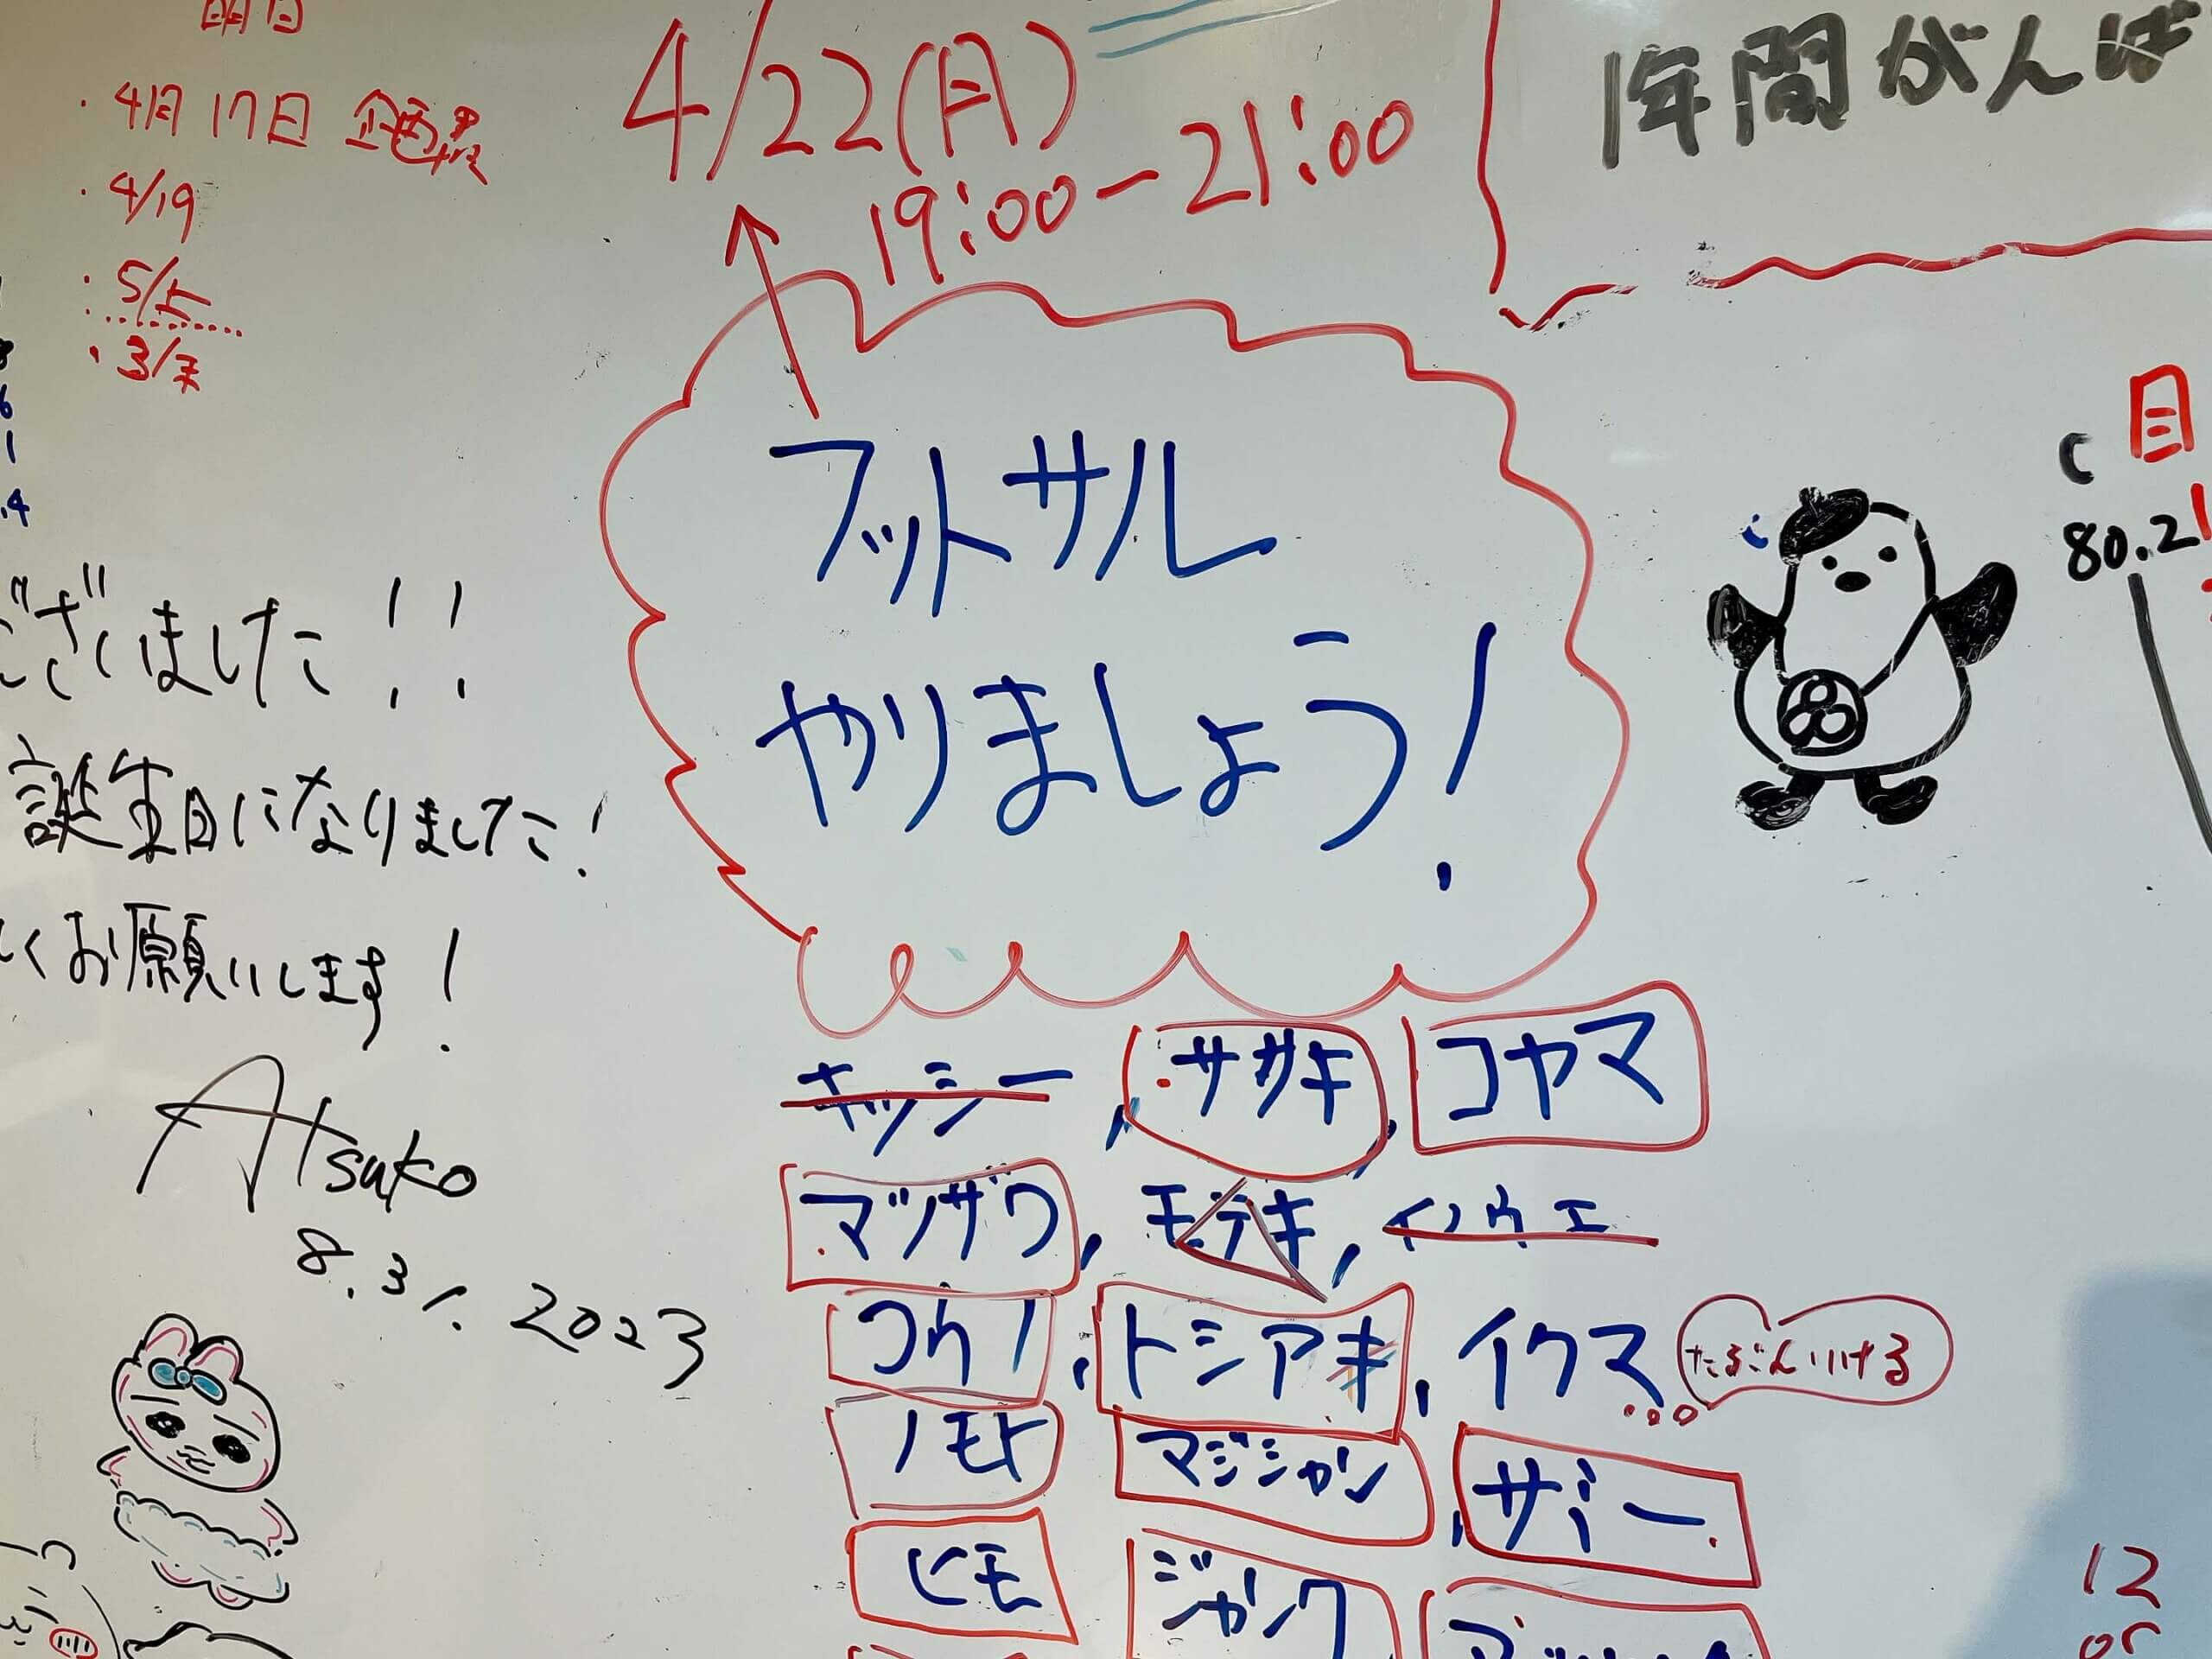 明日
・4月17日 企画
・4/19
・5/上
・3/末
4/22(月)
19:00-21:00
1年間がんば
フットサル
やりましょう!
ございました!!
誕生日になりました!
くお願いします!
Atsuko
8.31.2023
目
80.2
キッシー, ササキ, コヤマ
マツザワ, モテキ, イノウエ
コウノ, トシアキ, イクマ
たぶんいける
ノモト マジシャン, サバー
ヒモ ジャンク
12
or